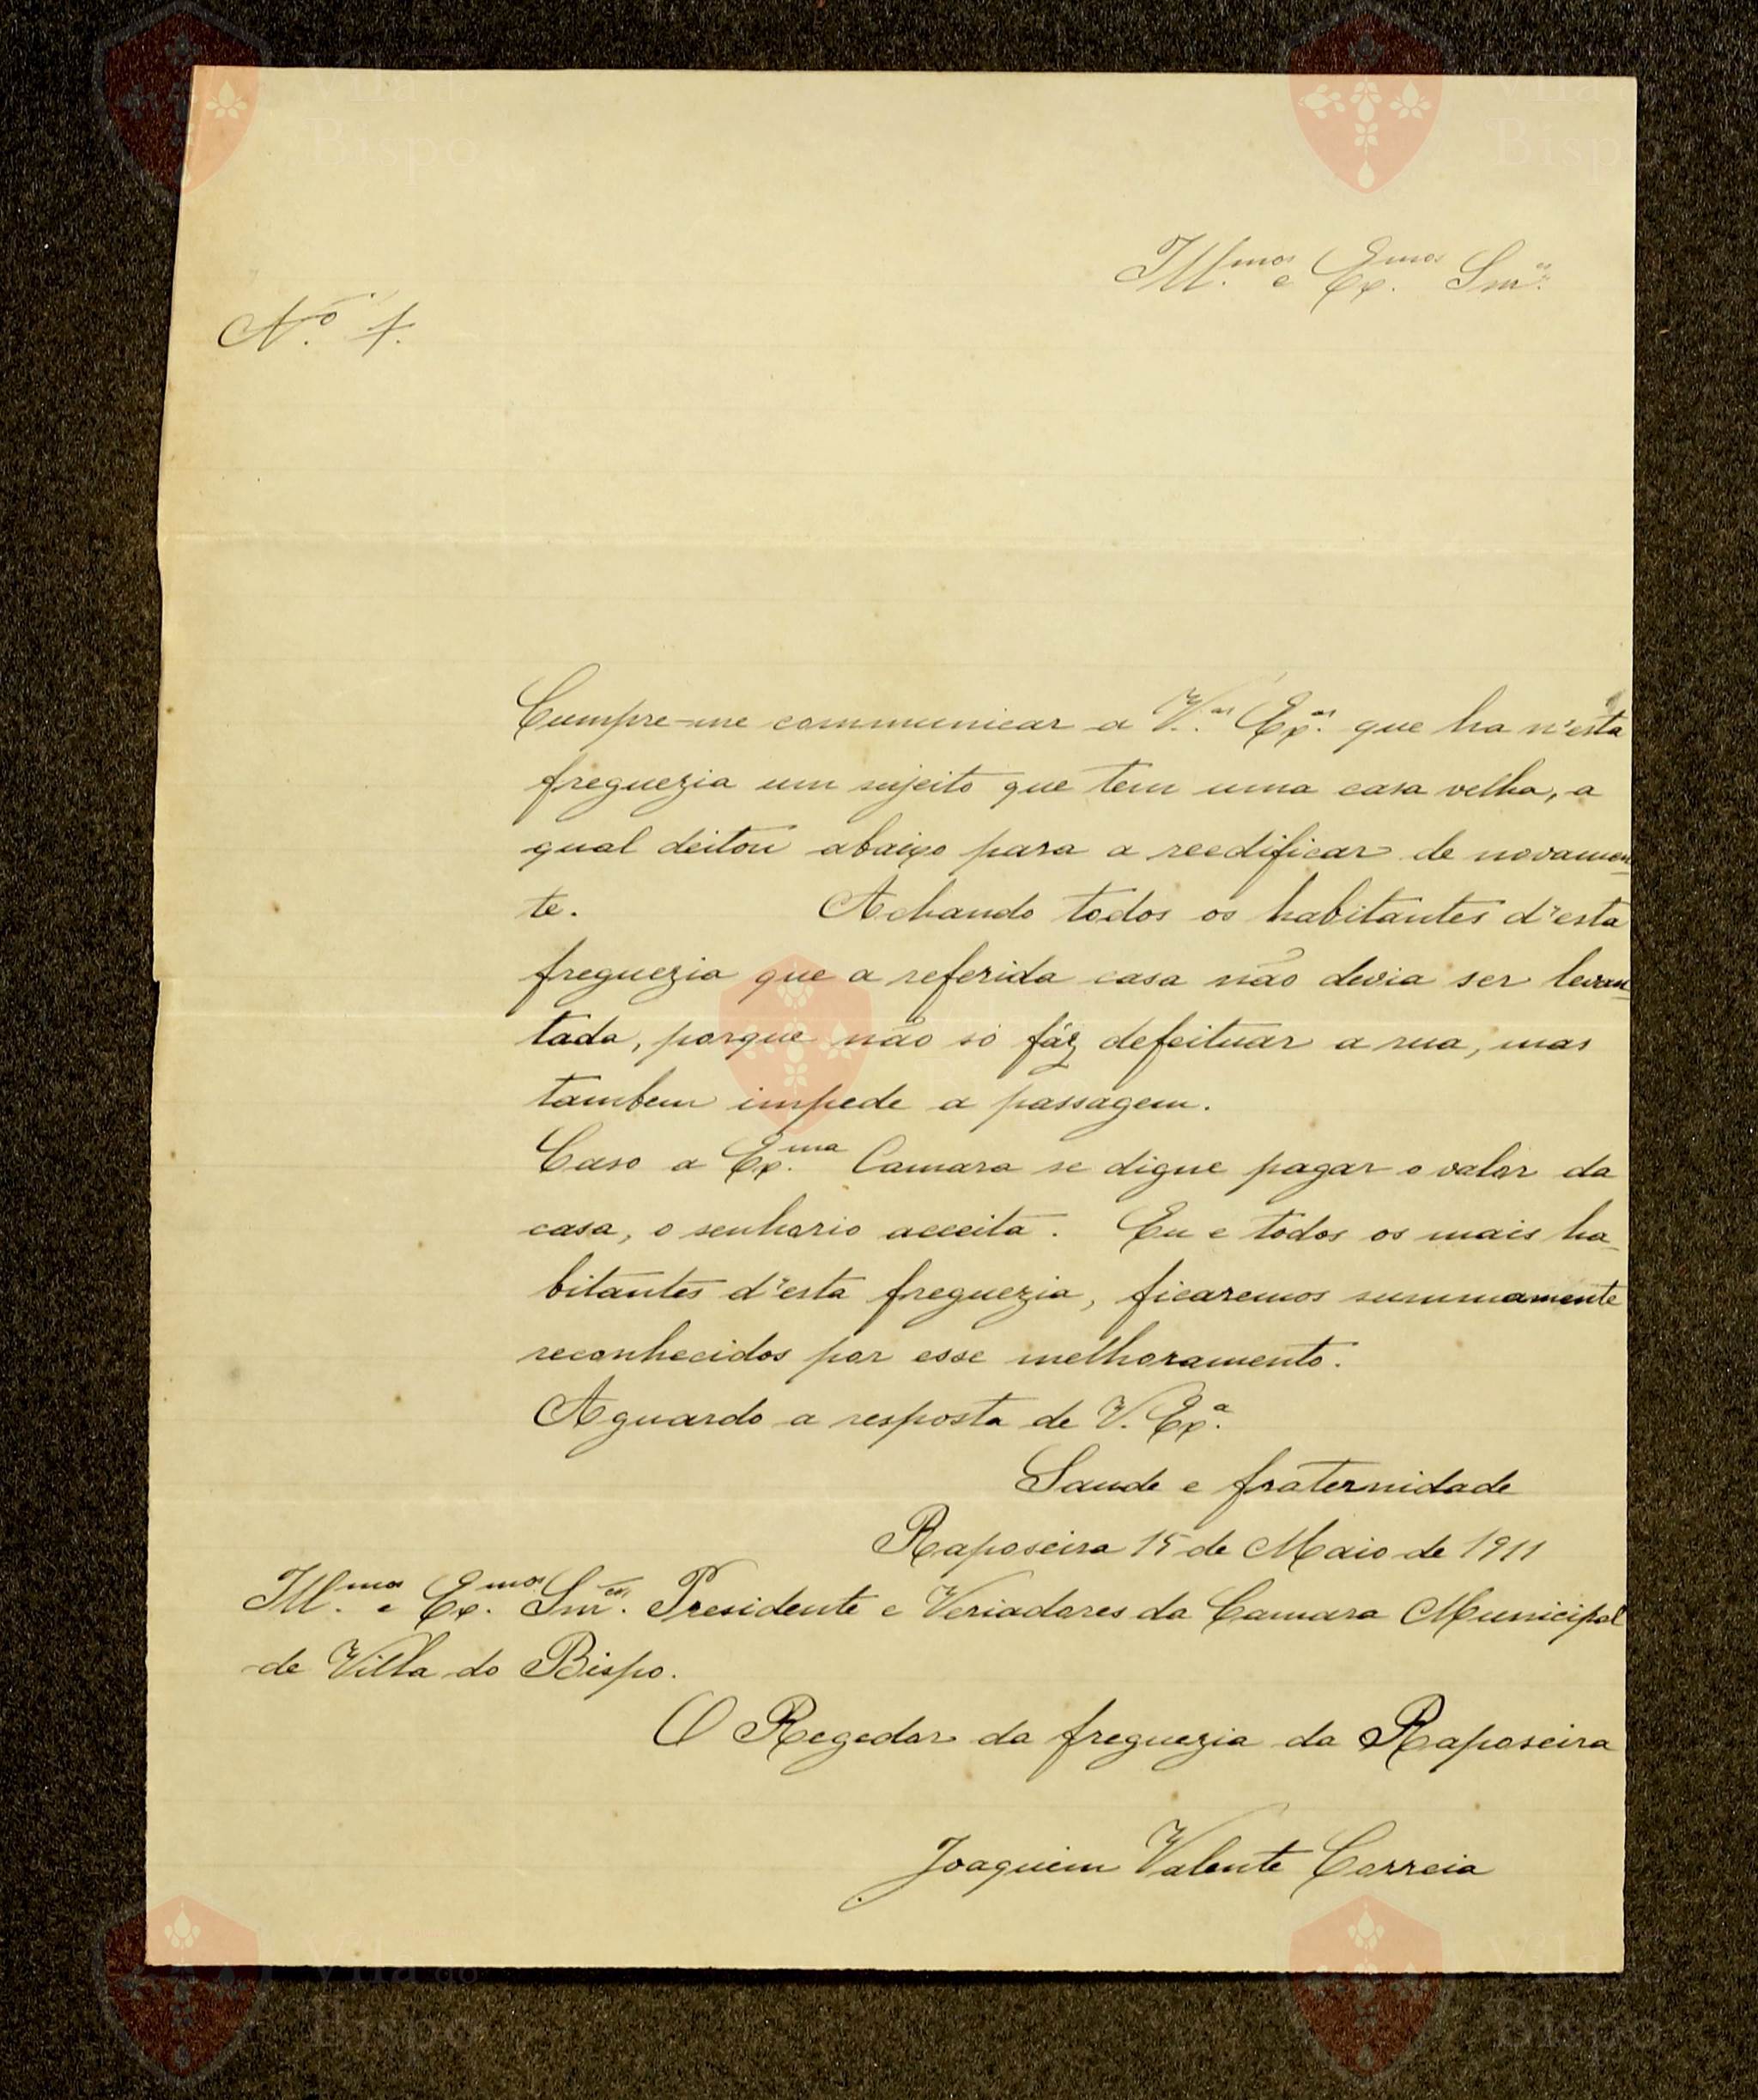 Ill.mos e Ex.mos Snr.es
N.º 1.
Cumpre-me communicar a V.as Ex.as que ha n'esta
freguezia um sujeito que tem uma casa velha, a
qual deitou abaixo para a reedificar de novamen-
te. Achando todos os habitantes d'esta
freguezia que a referida casa não devia ser levan-
tada, porque não só fáz defeituar a rua, mas
tambem impede a passagem.
Caso a Ex.ma Camara se digne pagar o valor da
casa, o senhorio acceita. Eu e todos os mais ha-
bitantes d'esta freguezia, ficaremos summamente
reconhecidos por esse melhoramento.
Aguardo a resposta de V. Ex.a
Saude e fraternidade
Raposeira 15 de Maio de 1911
Ill.mos e Ex.mos Snr.es Presidente e Veriadores da Camara Municipal
de Villa do Bispo.
O Regedor da freguezia da Raposeira
Joaquim Valente Correia